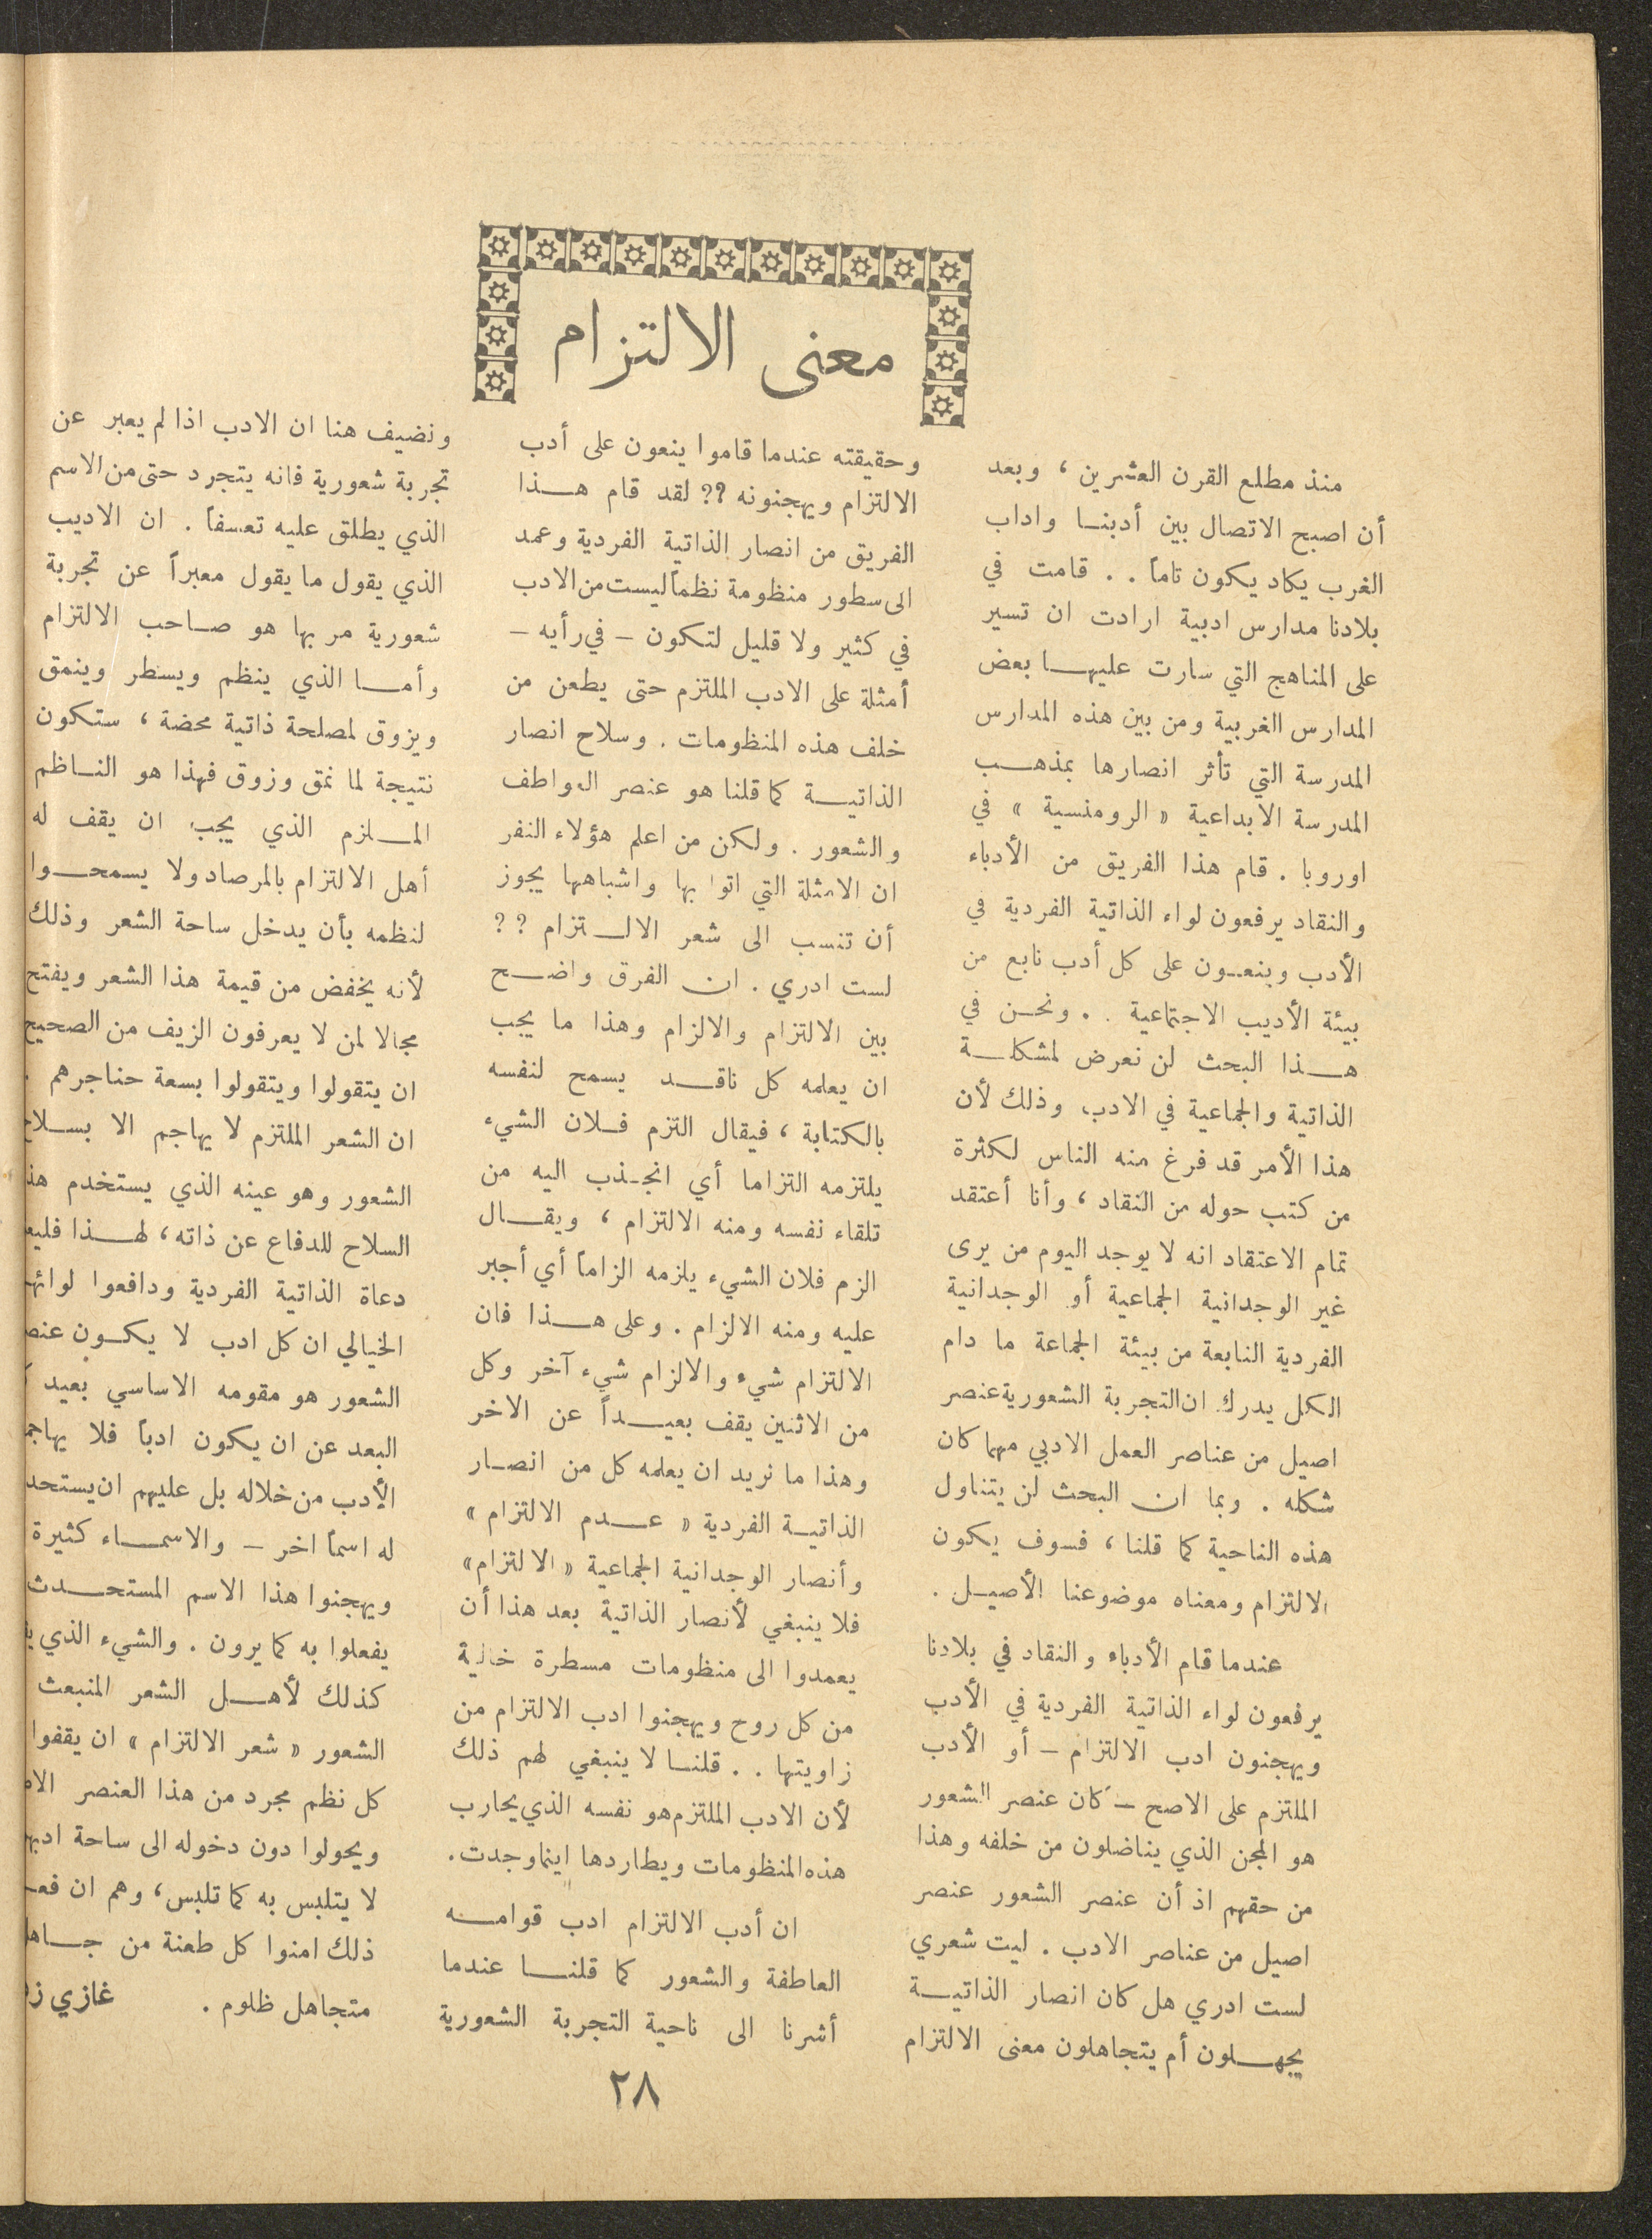 معنى الالتزام
منذ مطلع القرن العشرين ، وبعد
أن اصبح الاتصال بين أدبنا واداب
الغرب يكاد يكون تاماً . . قامت في
بلادنا مدارس ادبية ارادت ان تسير
على المناهج التي سارت عليها بعض
المدارس الغربية ومن بين هذه المدارس
المدرسة التي تأثر انصارها بمذهب
المدرسة الابداعية « الرومنسية » في
اوروبا . قام هذا الفريق من الأدباء
والنقاد يرفعون لواء الذاتية الفردية في
الأدب وينعون على كل أدب نابع من
بيئة الأديب الاجتماعية . . ونحن في
هذا البحث لن نعرض لمشكلة
الذاتية والجماعية في الادب وذلك لأن
هذا الأمر قد فرغ منه الناس لكثرة
من كتب حوله من النقاد ، وأنا أعتقد
تمام الاعتقاد انه لا يوجد اليوم من يرى
غير الوجدانية الجماعية أو الوجدانية
الفردية النابعة من بيئة الجماعة ما دام
الكل يدرك ان التجربة الشعورية عنصر
اصيل من عناصر العمل الادبي مهما كان
شكله . وبما ان البحث لن يتناول
هذه الناحية كما قلنا ، فسوف يكون
الالتزام ومعناه موضوعنا الأصيل .
عندما قام الأدباء والنقاد في بلادنا
يرفعون لواء الذاتية الفردية في الأدب
ويهجنون ادب الالتزام – أو الأدب
الملتزم على الاصح – كان عنصر الشعور
هو المجن الذي يناضلون من خلفه وهذا
من حقهم اذ أن عنصر الشعور عنصر
اصيل من عناصر الادب . ليت شعري
لست ادري هل كان انصار الذاتية
يجهلون أم يتجاهلون معنى الالتزام
وحقيقته عندما قاموا ينعون على أدب
الالتزام ويهجنونه ؟؟ لقد قام هذا
الفريق من انصار الذاتية الفردية وعمد
الى سطور منظومة نظماً ليست من الادب
في كثير ولا قليل لتكون – في رأيه –
أمثلة على الادب الملتزم حتى يطعن من
خلف هذه المنظومات . وسلاح انصار
الذاتية كما قلنا هو عنصر العواطف
والشعور . ولكن من اعلم هؤلاء النفر
ان الامثلة التي اتوا بها واشباهها يجوز
أن تنسب الى شعر الالتزام ؟؟
لست ادري . ان الفرق واضح
بين الالتزام والالزام وهذا ما يجب
ان يعلمه كل ناقد يسمح لنفسه
بالكتابة ، فيقال التزم فلان الشيء
يلتزمه التزاما أي انجذب اليه من
تلقاء نفسه ومنه الالتزام ، ويقال
الزم فلان الشيء يلزمه الزاماً أي أجبر
عليه ومنه الالزام . وعلى هذا فان
الالتزام شيء والالزام شيء آخر وكل
من الاثنين يقف بعيداً عن الاخر
وهذا ما نريد ان يعلمه كل من انصار
الذاتية الفردية « عدم الالتزام »
وأنصار الوجدانية الجماعية « الالتزام »
فلا ينبغي لأنصار الذاتية بعد هذا أن
يعمدوا الى منظومات مسطرة خالية
من كل روح ويهجنوا ادب الالتزام من
زاويتها . . قلنا لا ينبغي لهم ذلك
لأن الادب الملتزم هو نفسه الذي يحارب
هذه المنظومات ويطاردها اينما وجدت .
ان أدب الالتزام ادب قوامه
العاطفة والشعور كما قلنا عندما
أشرنا الى ناحية التجربة الشعورية
ونضيف هنا ان الادب اذا لم يعبر عن
تجربة شعورية فانه يتجرد حتى من الاسم
الذي يطلق عليه تعسفاً . ان الاديب
الذي يقول ما يقول معبراً عن تجربة
شعورية مر بها هو صاحب الالتزام
وأما الذي ينظم ويسطر وينمق
ويزوق لمصلحة ذاتية محضة ، ستكون
نتيجة لما نمق وزوق فهذا هو الناظم
الملزم الذي يجب ان يقف له
أهل الالتزام بالمرصاد ولا يسمحوا
لنظمه بأن يدخل ساحة الشعر وذلك
لأنه يخفض من قيمة هذا الشعر ويفتح
مجالا لمن لا يعرفون الزيف من الصحيح
ان يتقولوا ويتقولوا بسعة حناجرهم .
ان الشعر الملتزم لا يهاجم الا بسلاح
الشعور وهو عينه الذي يستخدم
السلاح للدفاع عن ذاته ، لهذا
دعاة الذاتية الفردية ودافعوا
الخيالي ان كل ادب لا يكون
الشعور هو مقومه الاساسي بعيد
البعد عن ان يكون ادباً فلا
الأدب من خلاله بل عليهم ان
له اسماً اخر – والاسماء كثيرة
ويهجنوا هذا الاسم المستحدث
يفعلوا به كما يرون . والشيء الذي
كذلك لأهل الشعر المنبعث
الشعور « شعر الالتزام » ان يقفوا
كل نظم مجرد من هذا العنصر
ويحولوا دون دخوله الى ساحة
لا يتلبس به كما تلبس ، وهم ان
ذلك امنوا كل طعنة من
متجاهل ظلوم . غازي
٢٨